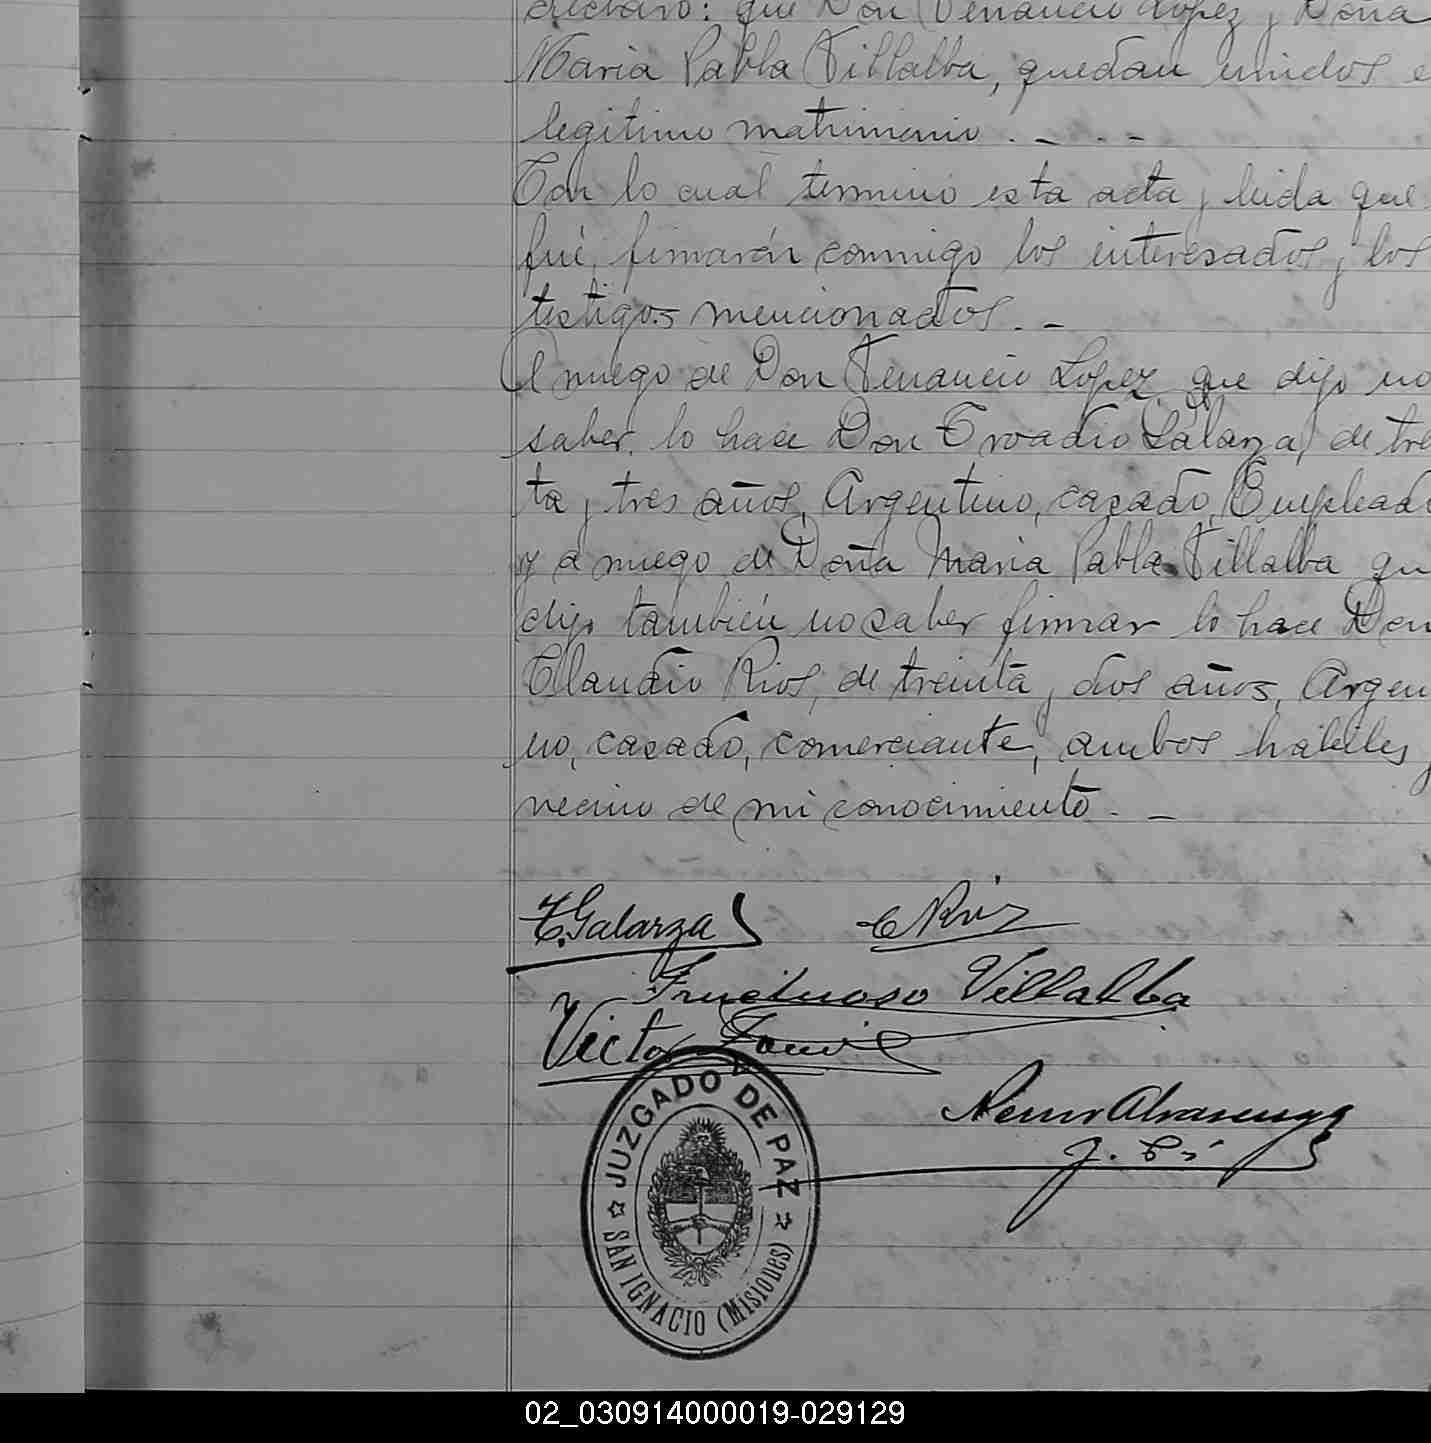 declaro: que Don Venancio Lopez y Doña
Maria Pabla Villalba, quedan unidos e
legitimo matrimonio. - . -
Con lo cual termino esta acta y leida que
fué, firmarón conmigo los interesados y los
testigos mencionados. -
A ruego de Don Venancio Lopez que dijo no
saber, lo hace Don Galarza, de tre
ta y tres años, Argentino, casado, Empleado
y a ruego de Doña Maria Pabla Villalba qu
dijo también no saber firmar lo hace Don
Claudio Rios, de treinta y dos años, Argen
no, casado, comerciante, ambos habiles y
vecino de mi conocimiento. - -
T. Galarza C Rios
Fructuoso Villalba
Victor
JUZGADO DE PAZ
SAN IGNACIO (MISIONES)
02_030914000019-029129